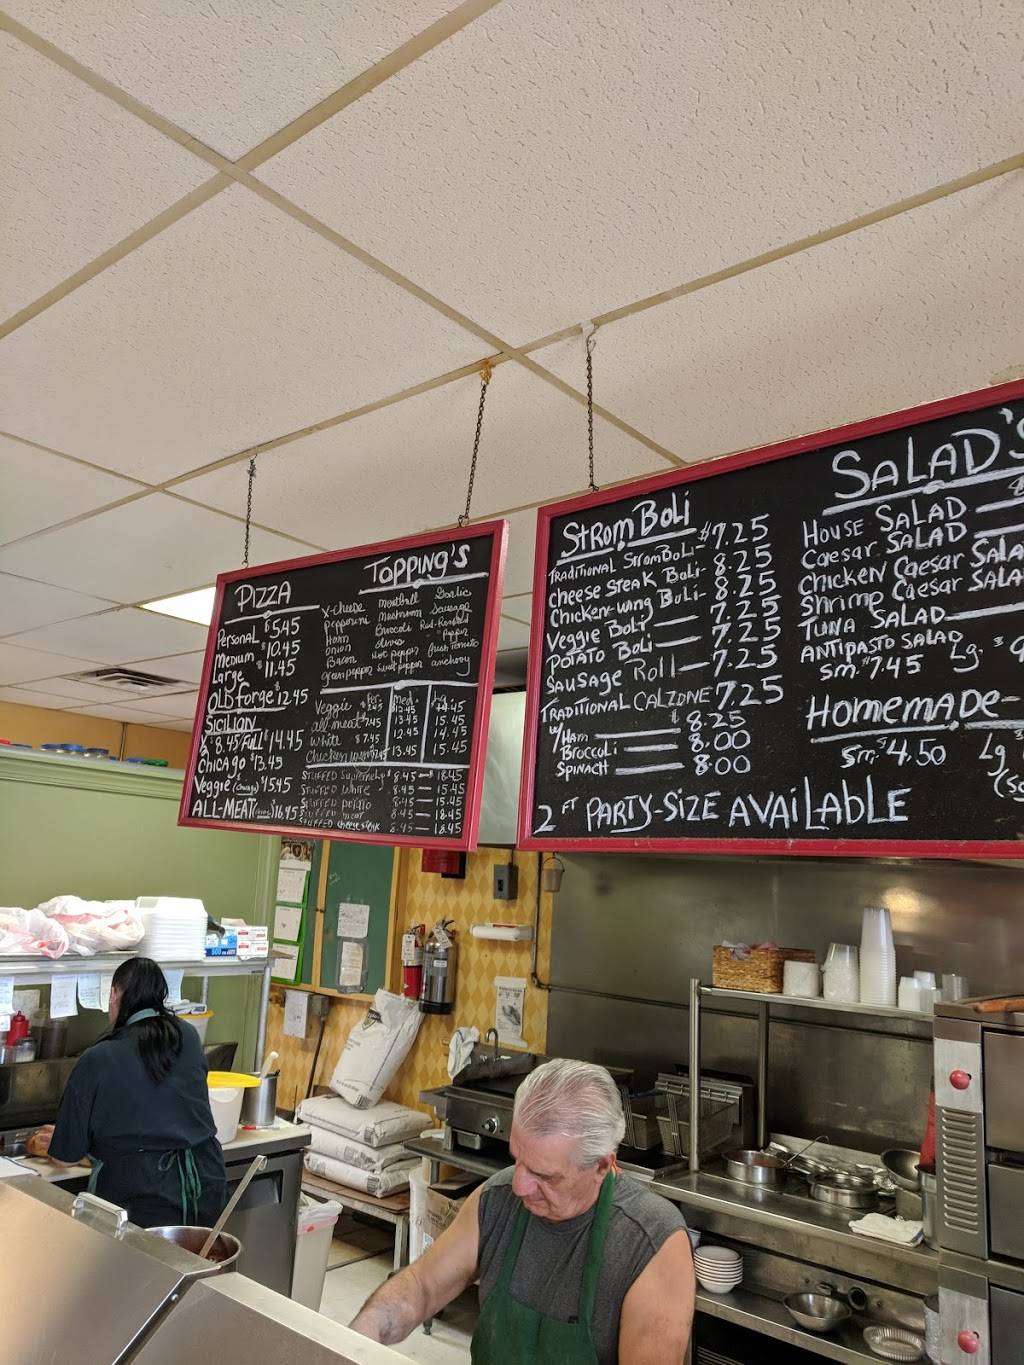 PIZZA
Personal $5.45
Medium $10.45
Large $11.45
OLD forge $12.45
SICILIAN
$8.45/FULL $14.45
Chicago $13.45
Veggie $15.45
ALL-MEAT $16.45
TOPPING'S
X-cheese meatball Garlic
pepperoni Mushroom Sausage
Ham Broccoli Red-Roasted
onion olives Pepper
Bacon Hot pepper fresh Tomato
green pepper Sweet pepper anchovy
Per. Med. Lg.
Veggie
all meat 13.45 15.45
White $7.45 12.45 14.45
Chicken wing 13.45 15.45
STUFFED Supreme $8.45 — 18.45
STUFFED White 8.45 — 15.45
STUFFED potato 8.45 — 15.45
STUFFED meat 8.45 — 18.45
STUFFED cheesesteak 8.45 — 18.45
STROMBOLI
TRADITIONAL STROMBOLI - $7.25
CHEESE STEAK Boli - 8.25
Chicken-wing Boli - 8.25
Veggie Boli — 7.25
POTATO Boli — 7.25
SAUSAGE Roll — 7.25
TRADITIONAL CALZONE 7.25
w/ HAM — $8.25
BROCCOLI — 8.00
SPINACH — 8.00
2 FT PARTY-SIZE AVAILABLE
SALAD'S
HOUSE SALAD —
Caesar SALAD —
CHICKEN Caesar SALA
Shrimp Caesar SALA
TUNA SALAD —
ANTIPASTO SALAD
Sm. $7.45 Lg. $9
HOMEMADE-
Sm. $4.50 Lg